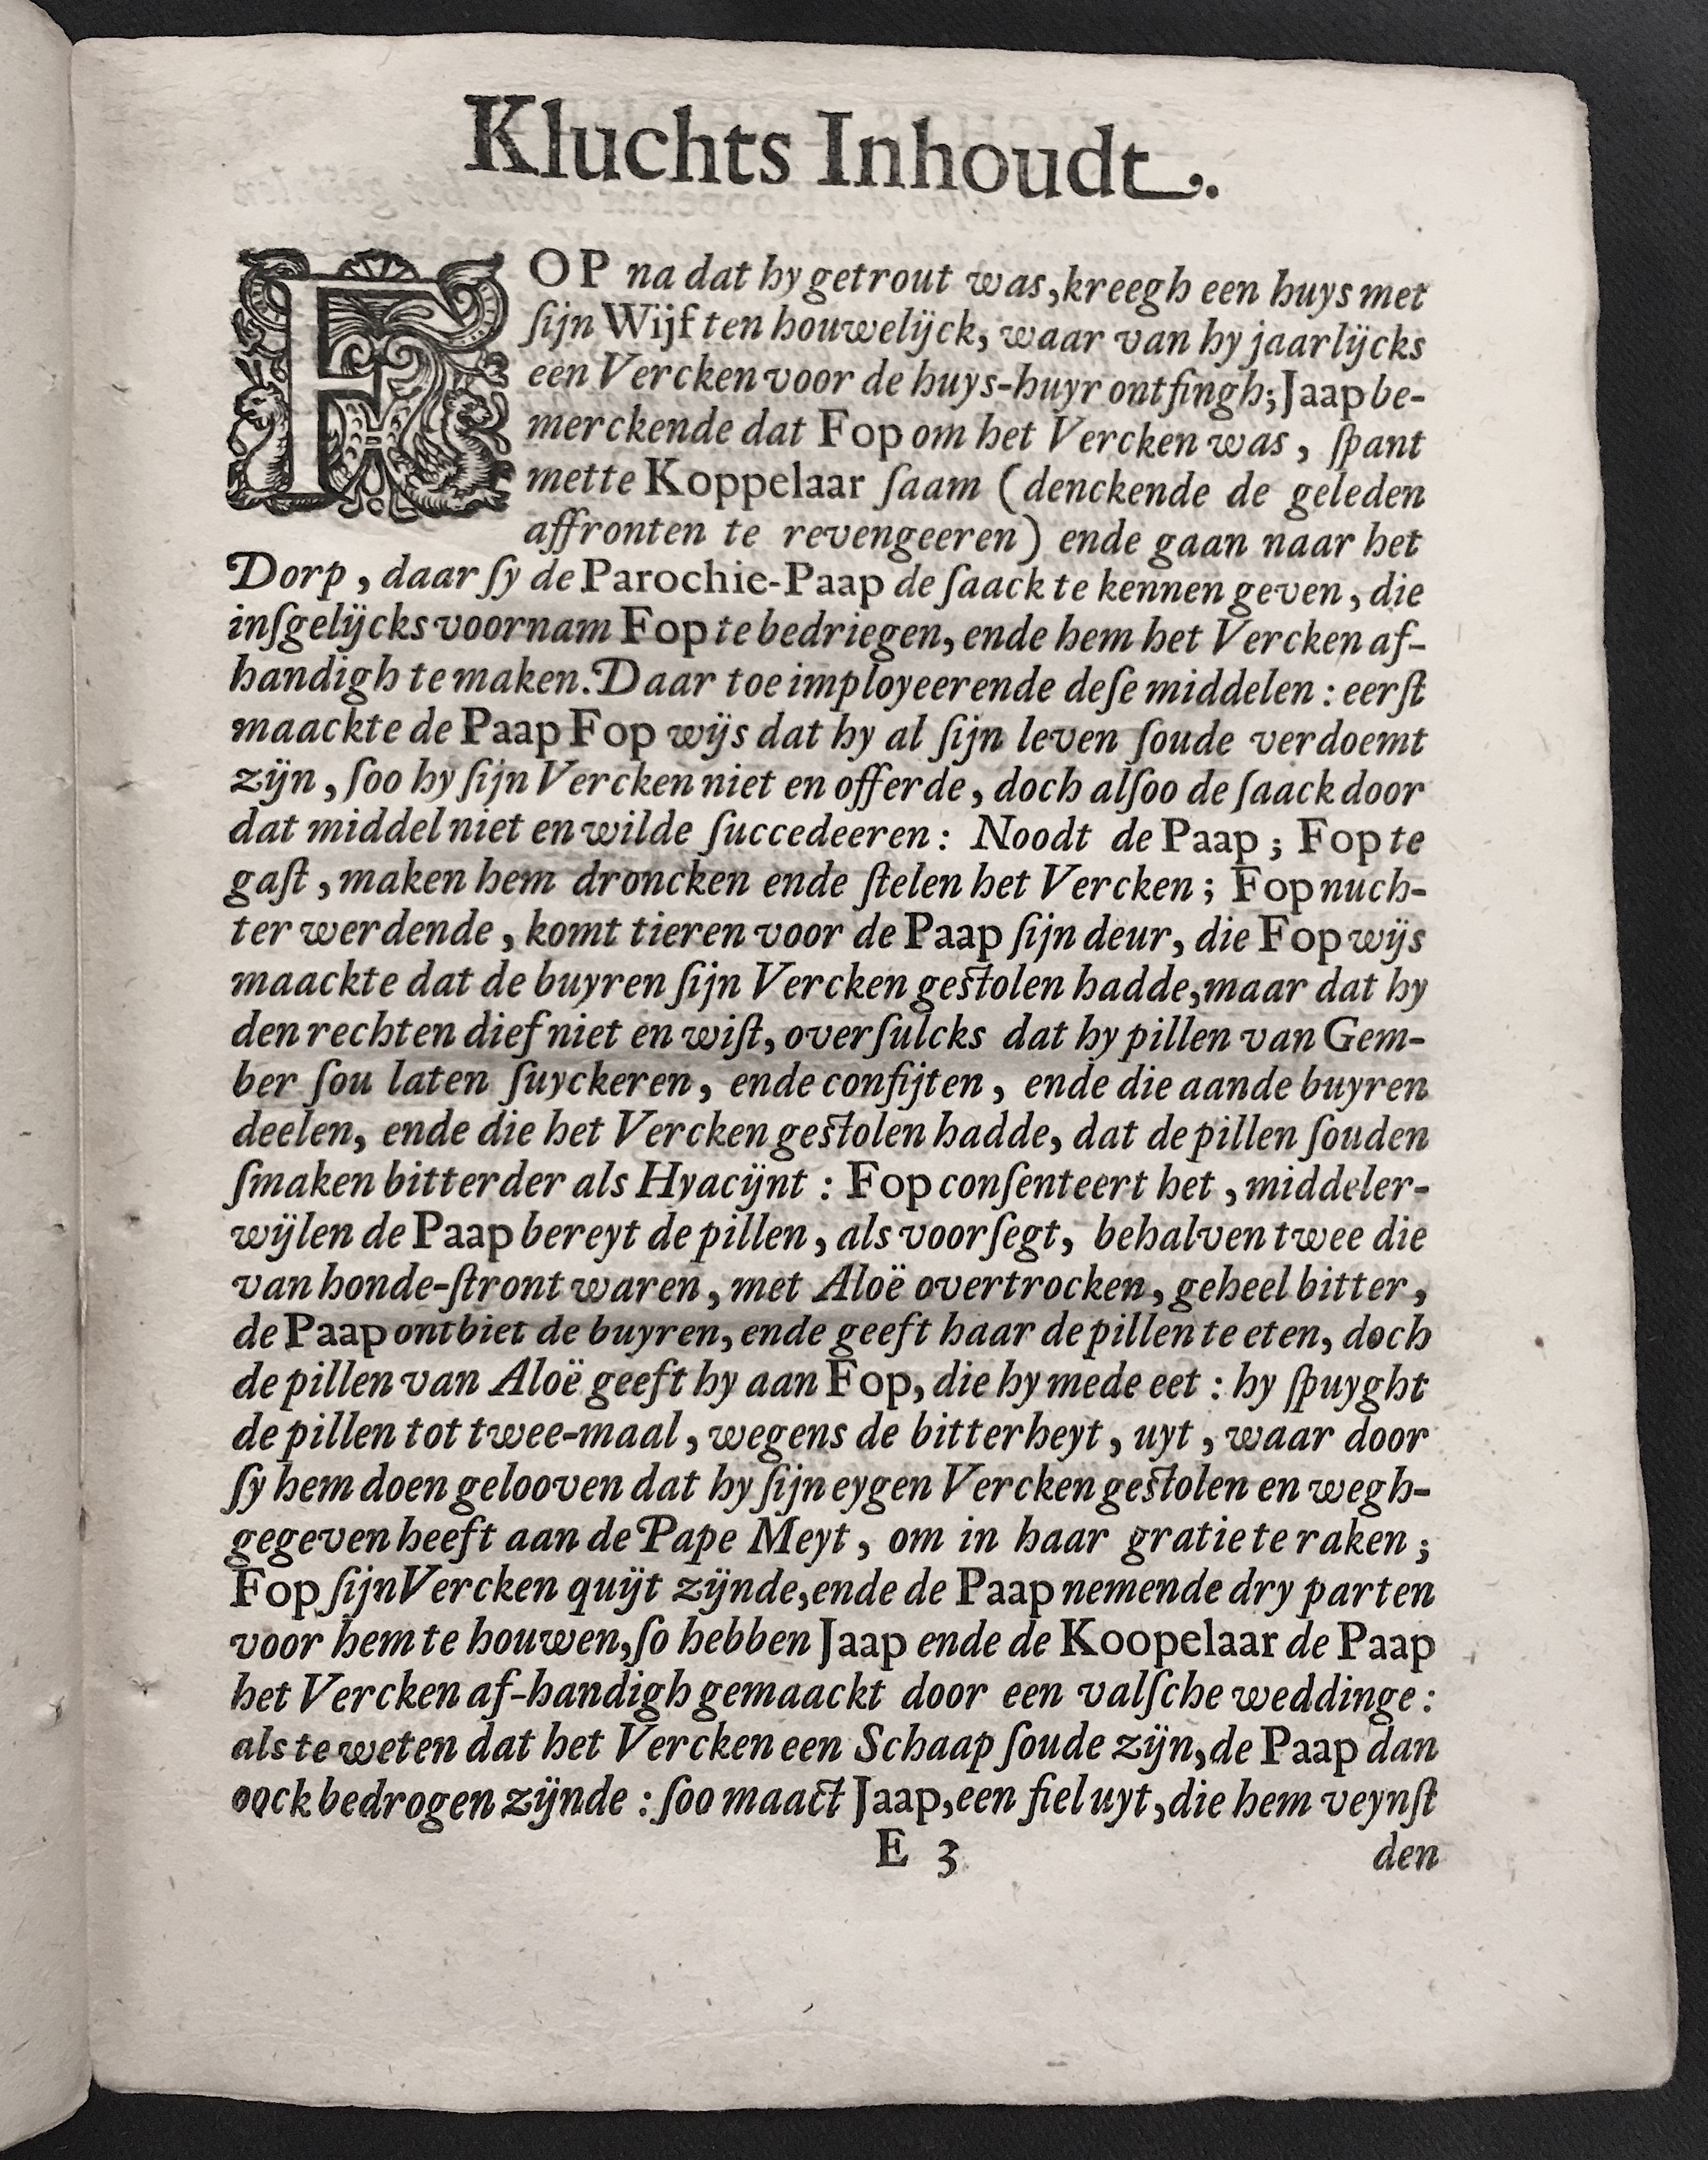 Kluchts Inhoudt.
FOP na dat hy getrout was, kreegh een huys met
ſijn Wijf ten houwelijck, waar van hy jaarlijcks
een Vercken voor de huys-huyr ontfingh; Jaap be-
merckende dat Fop om het Vercken was, ſpant
mette Koppelaar ſaam (denckende de geleden
affronten te revengeeren) ende gaan naar het
Dorp, daar ſy de Parochie-Paap de ſaack te kennen geven, die
inſgelijcks voornam Fop te bedriegen, ende hem het Vercken af-
handigh te maken. Daar toe imployeerende deſe middelen: eerſt
maackte de Paap Fop wijs dat hy al ſijn leven ſoude verdoemt
zijn, ſoo hy ſijn Vercken niet en offerde, doch alſoo de ſaack door
dat middel niet en wilde ſuccedeeren: Noodt de Paap; Fop te
gaſt, maken hem droncken ende ſtelen het Vercken; Fop nuch-
ter werdende, komt tieren voor de Paap ſijn deur, die Fop wijs
maackte dat de buyren ſijn Vercken geſtolen hadde, maar dat hy
den rechten dief niet en wiſt, overſulcks dat hy pillen van Gem-
ber ſou laten ſuyckeren, ende confijten, ende die aande buyren
deelen, ende die het Vercken geſtolen hadde, dat de pillen ſouden
ſmaken bitterder als Hyacijnt: Fop conſenteert het, middeler-
wijlen de Paap bereyt de pillen, als voorſegt, behalven twee die
van honde-ſtront waren, met Aloë overtrocken, geheel bitter,
de Paap ontbiet de buyren, ende geeft haar de pillen te eten, doch
de pillen van Aloë geeft hy aan Fop, die hy mede eet: hy ſpuyght
de pillen tot twee-maal, wegens de bitterheyt, uyt, waar door
ſy hem doen gelooven dat hy ſijn eygen Vercken geſtolen en wegh-
gegeven heeft aan de Pape Meyt, om in haar gratie te raken;
Fop ſijn Vercken quijt zijnde, ende de Paap nemende dry parten
voor hem te houwen, ſo hebben Jaap ende de Koopelaar de Paap
het Vercken af-handigh gemaackt door een valſche weddinge:
als te weten dat het Vercken een Schaap ſoude zijn, de Paap dan
oock bedrogen zijnde: ſoo maact Jaap, een fiel uyt, die hem veynſt
E 3
den